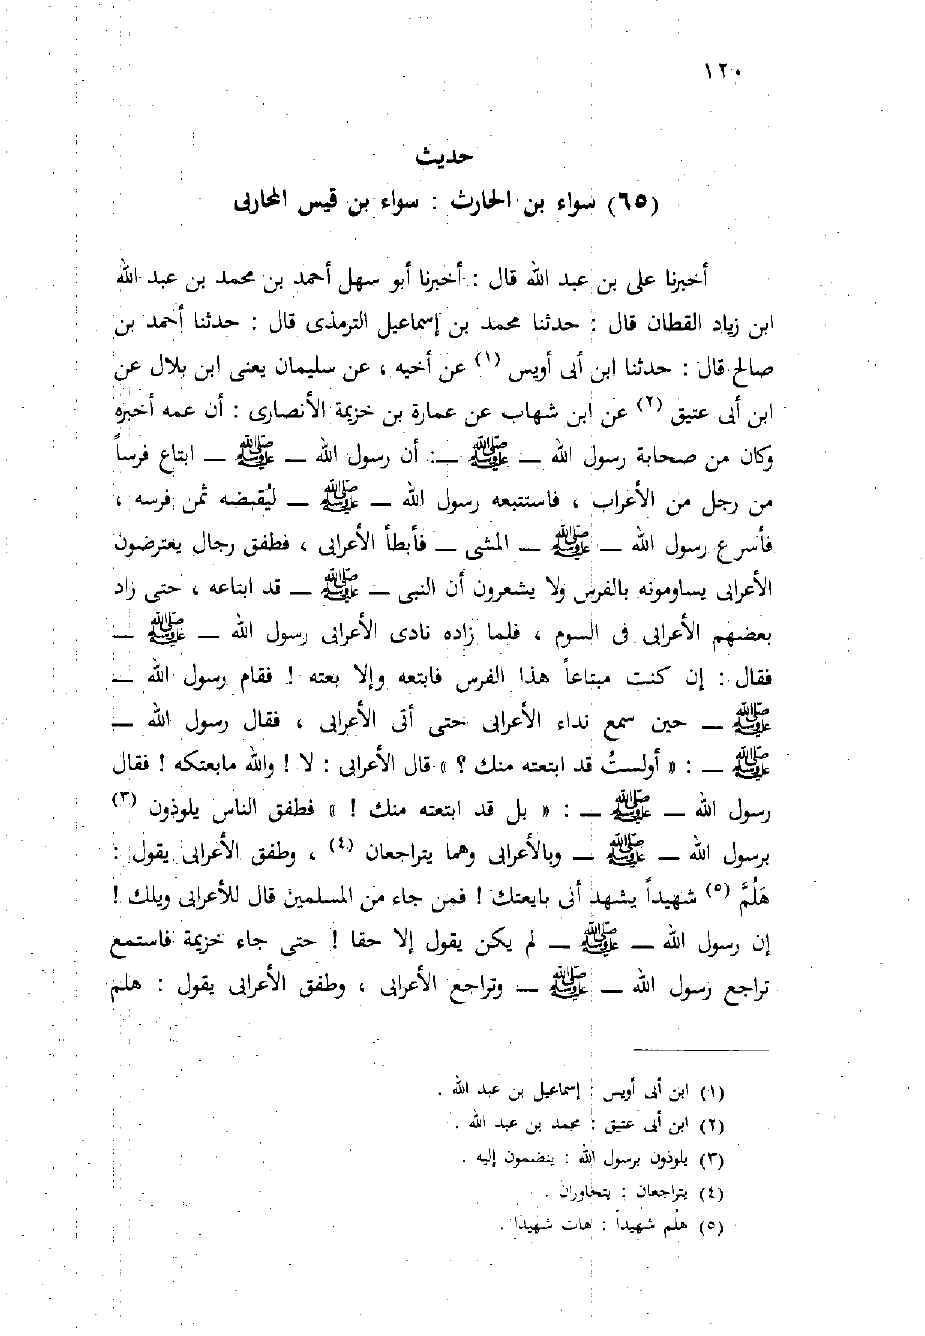 ١٢٠
حديث
(٦٥) سواء بن الحارث : سواء بن قيس المحاربى
أخبرنا على بن عبد الله قال : أخبرنا أبو سهل أحمد بن محمد بن عبد الله
ابن زياد القطان قال : حدثنا محمد بن إسماعيل الترمذى قال : حدثنا أحمد بن
صالح قال : حدثنا ابن أبى أويس (١) عن أخيه ، عن سليمان يعنى ابن بلال عن
ابن أبى عتيق (٢) عن ابن شهاب عن عمارة بن خزيمة الأنصارى : أن عمه أخبره
وكان من صحابة رسول الله ــ ﷺ ــ: أن رسول الله ــ ﷺ ــ ابتاع فرساً
من رجل من الأعراب ، فاستتبعه رسول الله ــ ﷺ ــ ليُقبضه ثمن فرسه ،
فأسرع رسول الله ــ ﷺ ــ المشى ــ فأبطأ الأعرابى ، فطفق رجال يعترضون
الأعرابى يساومونه بالفرس ولا يشعرون أن النبى ــ ﷺ ــ قد ابتاعه ، حتى زاد
بعضهم الأعرابى فى السوم ، فلما زاده نادى الأعرابى رسول الله ــ ﷺ ــ
فقال : إن كنت مبتاعاً هذا الفرس فابتعه وإلا بعته ! فقام رسول الله ــ
ﷺ ــ حين سمع نداء الأعرابى حتى أتى الأعرابى ، فقال رسول الله ــ
ﷺ ــ : « أولستُ قد ابتعته منك ؟ » قال الأعرابى : لا ! والله مابعتكه ! فقال
رسول الله ــ ﷺ ــ : « بل قد ابتعته منك ! » فطفق الناس يلوذون (٣)
برسول الله ــ ﷺ ــ وبالأعرابى وهما يتراجعان (٤) ، وطفق الأعرابى يقول :
هَلُمَّ (٥) شهيداً يشهد أنى بايعتك ! فمن جاء من المسلمين قال للأعرابى ويلك !
إن رسول الله ــ ﷺ ــ لم يكن يقول إلا حقا ! حتى جاء خزيمة فاستمع
تراجع رسول الله ــ ﷺ ــ وتراجع الأعرابى ، وطفق الأعرابى يقول : هلم
(١) ابن أبى أويس : إسماعيل بن عبد الله .
(٢) ابن أبى عتيق : محمد بن عبد الله .
(٣) يلوذون برسول الله : ينضمون إليه .
(٤) يتراجعان : يتحاوران .
(٥) هلُم شهيداً : هات شهيدا .